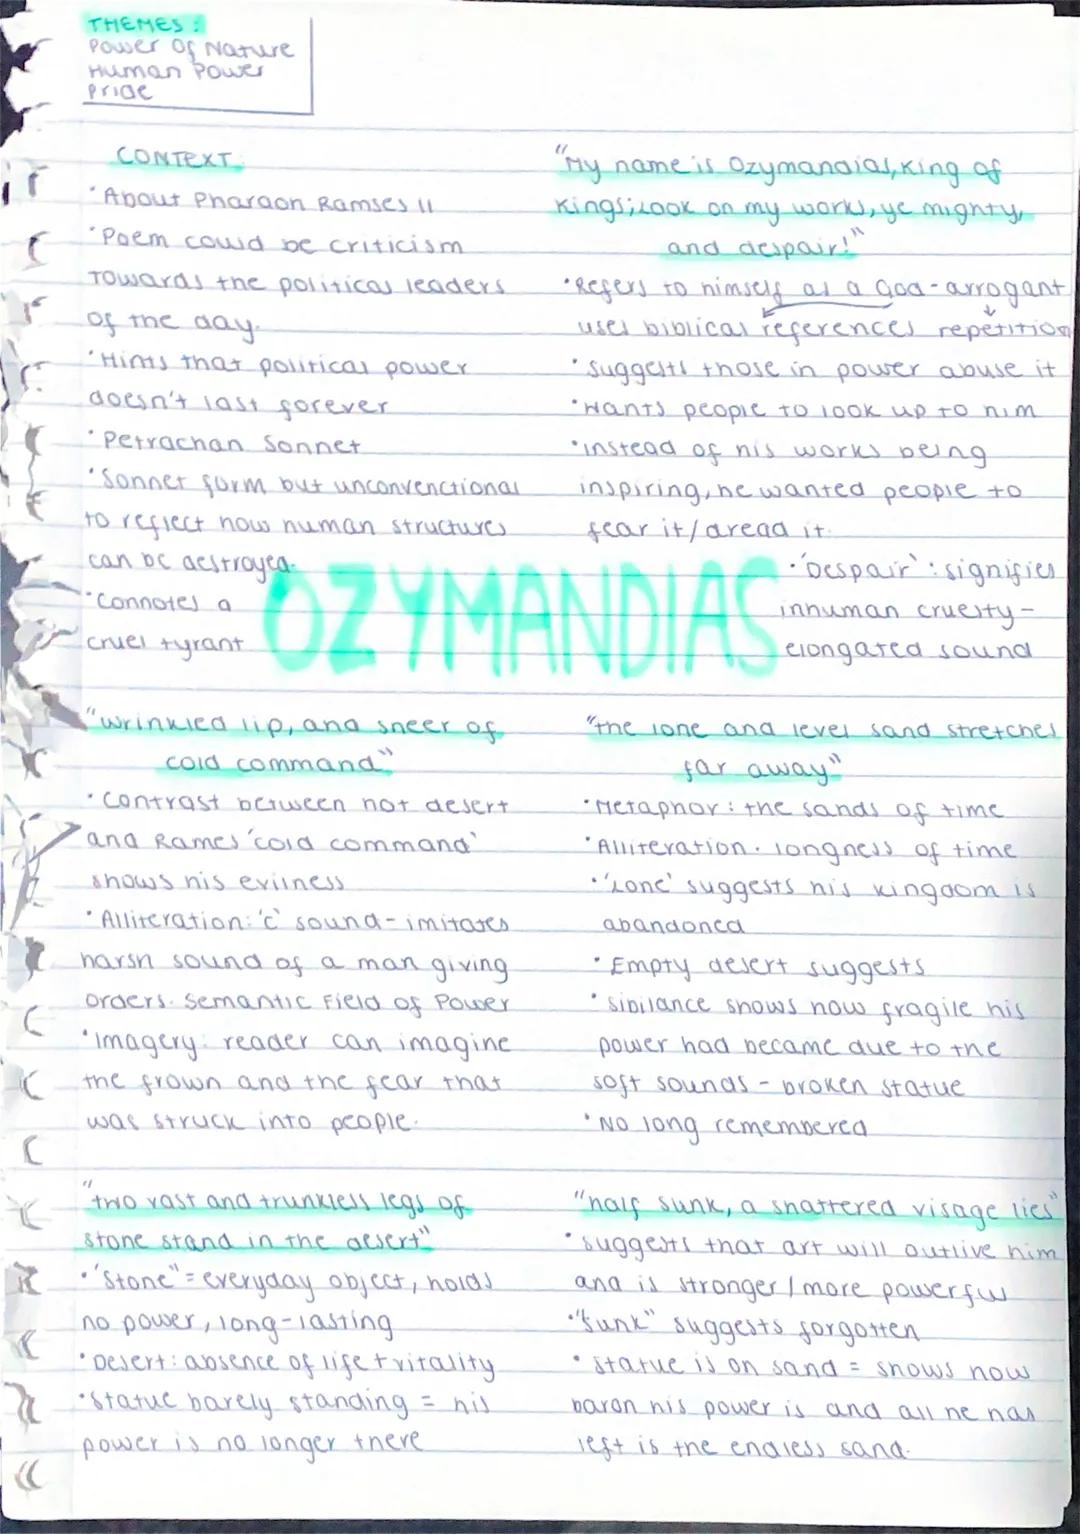 THEMES:
Power Of Nature
Human Power
Pride
CONTEXT:
• About Pharaoh Ramses II
• Poem could be criticism
towards the political leaders
of the day.
• Hints that political power
doesn't last forever
• Petrachan Sonnet
• Sonnet form but unconventional
to reflect how human structures
can be destroyed.
• Connotes a
cruel tyrant
"My name is Ozymandias, King of
Kings; Look on my works, ye mighty,
and despair!"
• Refers to himself as a God - arrogant
uses biblical references repetition
• Suggests those in power abuse it
• Wants people to look up to him
• instead of his works being
inspiring, he wanted people to
fear it/dread it.
• 'Despair': signifies
inhuman cruelty -
elongated sound
OZYMANDIAS
"wrinkled lip, and sneer of
cold command"
• Contrast between hot desert
and Rames 'cold command'
shows his evilness
• Alliteration: 'c' sound - imitates
harsh sound of a man giving
orders. Semantic Field of Power
• Imagery: reader can imagine
the frown and the fear that
was struck into people.
"the lone and level sand stretches
far away"
• Metaphor: the sands of time
• Alliteration. longness of time
• 'Lone' suggests his kingdom is
abandoned
• Empty desert suggests
• Sibilance shows how fragile his
power had became due to the
soft sounds - broken statue
• No long remembered
"two vast and trunkless legs of
stone stand in the desert"
• "Stone" = everyday object, holds
no power, long-lasting
• Desert: absence of life + vitality
• Statue barely standing = his
power is no longer there
"half sunk, a shattered visage lies"
• suggests that art will outlive him
and is stronger/more powerful
• "Sunk" suggests forgotten
• statue is on sand = shows how
baron his power is and all he has
left is the endless sand.